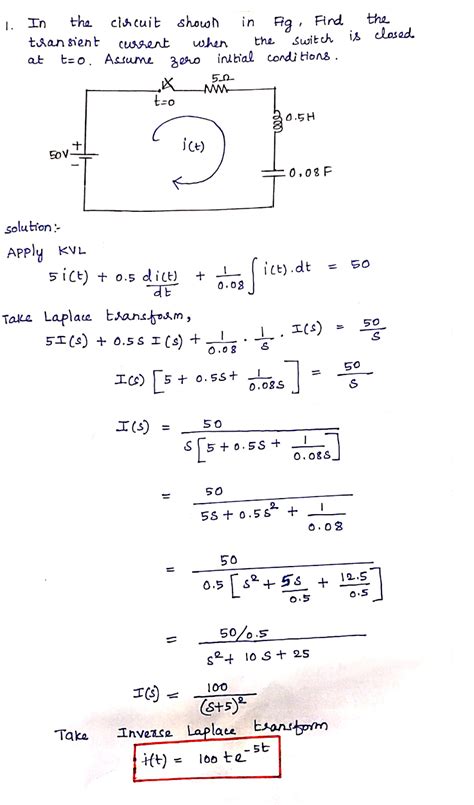 1. In the circuit shown in Fig, Find the
transient current when the switch is closed
at t=0. Assume zero initial conditions.
5Ω
t=0
0.5H
50V
+
-
i(t)
0.08F
solution:-
Apply KVL
5i(t) + 0.5 di(t)/dt + 1/0.08 ∫ i(t).dt = 50
Take Laplace transform,
5I(s) + 0.5s I(s) + 1/0.08 . 1/s . I(s) = 50/s
I(s) [5 + 0.5s + 1/0.08s] = 50/s
I(s) = 50 / s[5 + 0.5s + 1/0.08s]
= 50 / 5s + 0.5s² + 1/0.08
= 50 / 0.5 [s² + 5s/0.5 + 12.5/0.5]
= 50/0.5 / s² + 10s + 25
I(s) = 100/(s+5)²
Take Inverse Laplace transform
i(t) = 100 t e^-5t